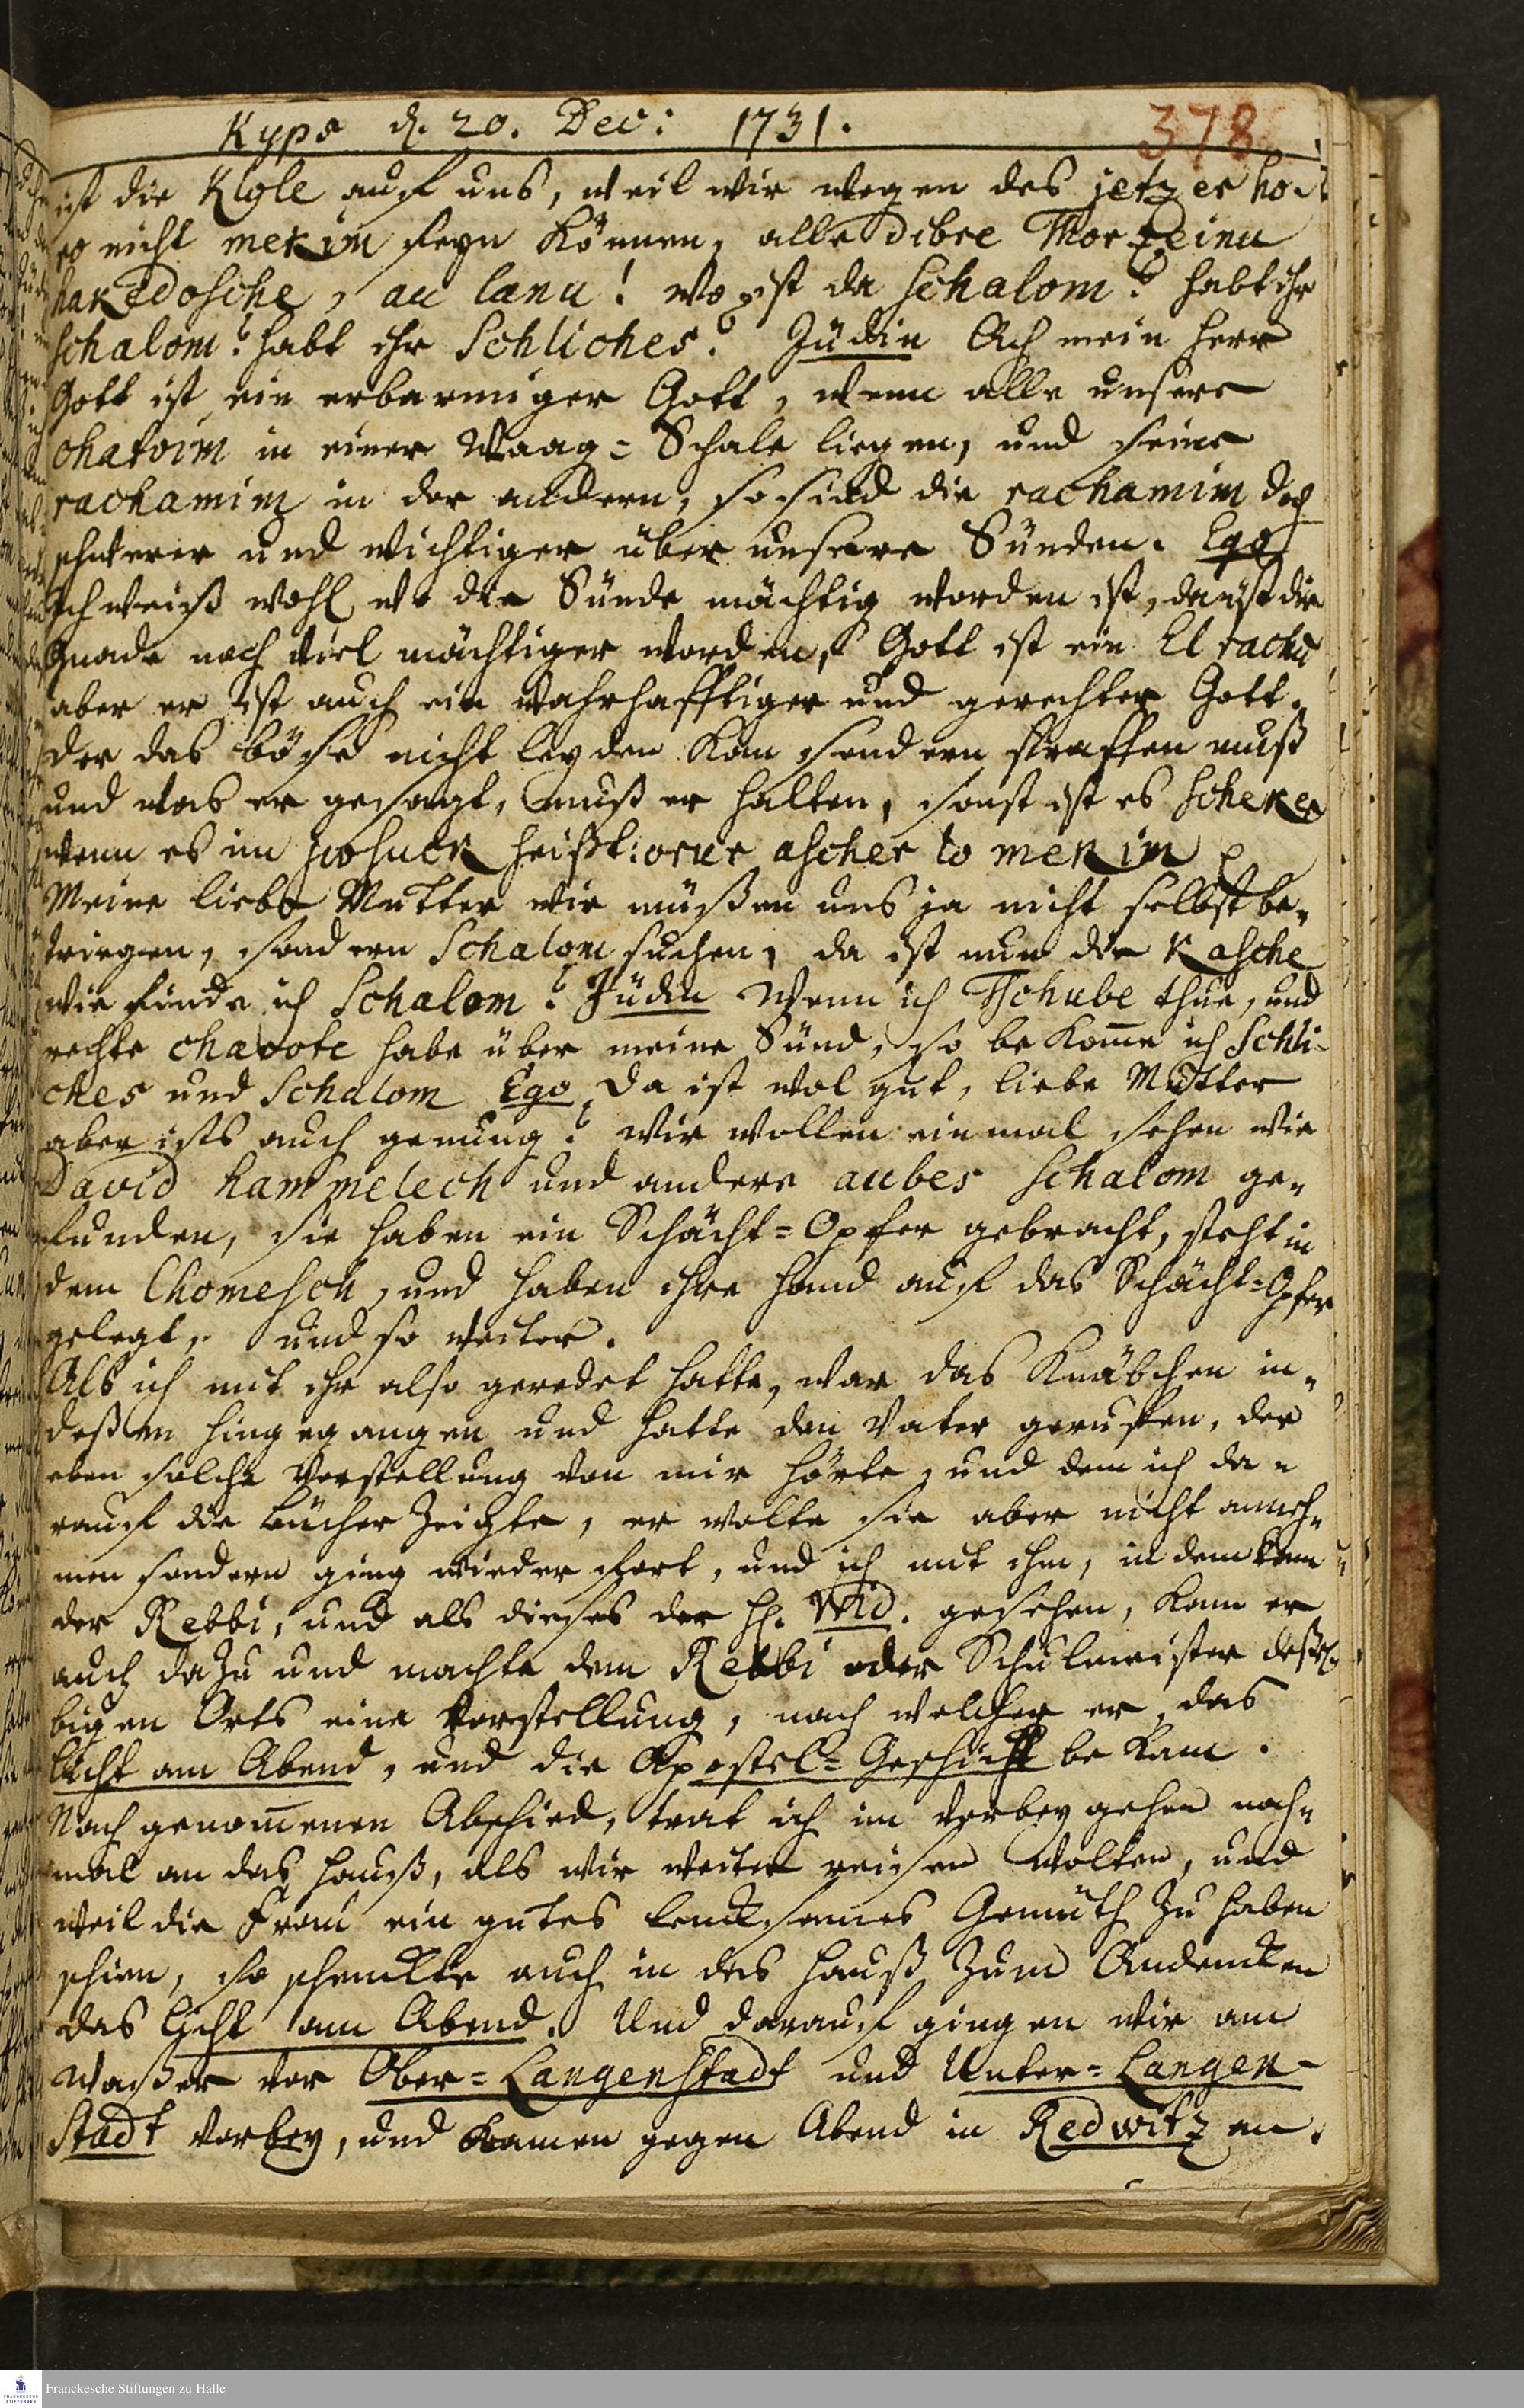 Kyps d. 20. Dec: 1731.
378
ist die Klole auf uns, weil wir wegen des jetzer ho-
ro nicht mekim seyn können, alle dibre Thor zeinu
hakedosche, au lanu! wo ist da schalom? habt ihr
schalom? habt ihr Schliches? Jüdin Ach mein Herr
Gott ist ein erbarmiger Gott, wenn alle unsere
chatoim in einer Waag-Schale liegen, und seine
rachamim in der andern, so sind die rachamim doch
schwerer und wichtiger über unsere Sünden. Ego
Ich weiß wohl, wo die Sünde mächtig worden ist, da ist die
Gnade noch viel mächtiger worden, Gott ist ein El rachū
aber er ist auch ein wahrhafftiger und gerechter Gott.
der das böse nicht leyden kan sondern straffen muß
und was er gesagt, muß er halten, sonst ist es scheker
wenn es im posuck heißt: orur ascher lo mekim
Meine liebe Mutter wir müßen uns ja nicht selbst be-
triegen, sondern Schalom suchen, da ist nun die Kasche
wie finde ich Schalom? Jüdin Wenn ich Tschube thue, und
rechte charote habe über meine Sünd, so bekom̄e ich Schli-
ches und Schalom Ego Da ist wol gut, liebe Mutter
aber ists auch genung? wir wollen einmal sehen wie
David hammelech und andere aubes schalom ge-
funden, sie haben ein Schächt-Opfer gebracht, steht in
dem Chomesch, und haben ihre Hand auf das Schächt-Opfer
gelegt, und so weiter.
Als ich mit ihr also geredet hatte, war das Knäbchen in-
deßen hingegangen und hatte den Vater geruffen, der
eben solche Vorstellung von mir hörte, und dem ich da-
rauf die Bücher zeigte, er wolte sie aber nicht anneh-
men sondern ging wieder fort, und ich mit ihm, in dem kam
der Rebbi, und als dieses der H. Wid. gesehen, kam er
auch dazu und machte dem Rebbi oder Schulmeister deßel-
bigen Orts eine Vorstellung, nach welcher er das
Licht am Abend, und die Apostel-Geschicht bekam.
Nach genom̄enen Abschied, trat ich im vorbey gehen noch-
mal an das Hauß, als wir weiter reisen wolten, und
weil die Frau ein gutes lencksames Gemüth zu haben
schien, so schenckte auch in das Hauß zum Andencken
das Licht am Abend. Und darauf gingen wir am
Waßer vor Ober-Langenstadt und Unter-Langen-
Stadt vorbey, und kamen gegen Abend in Redwitz an.
Franckesche Stiftungen zu Halle